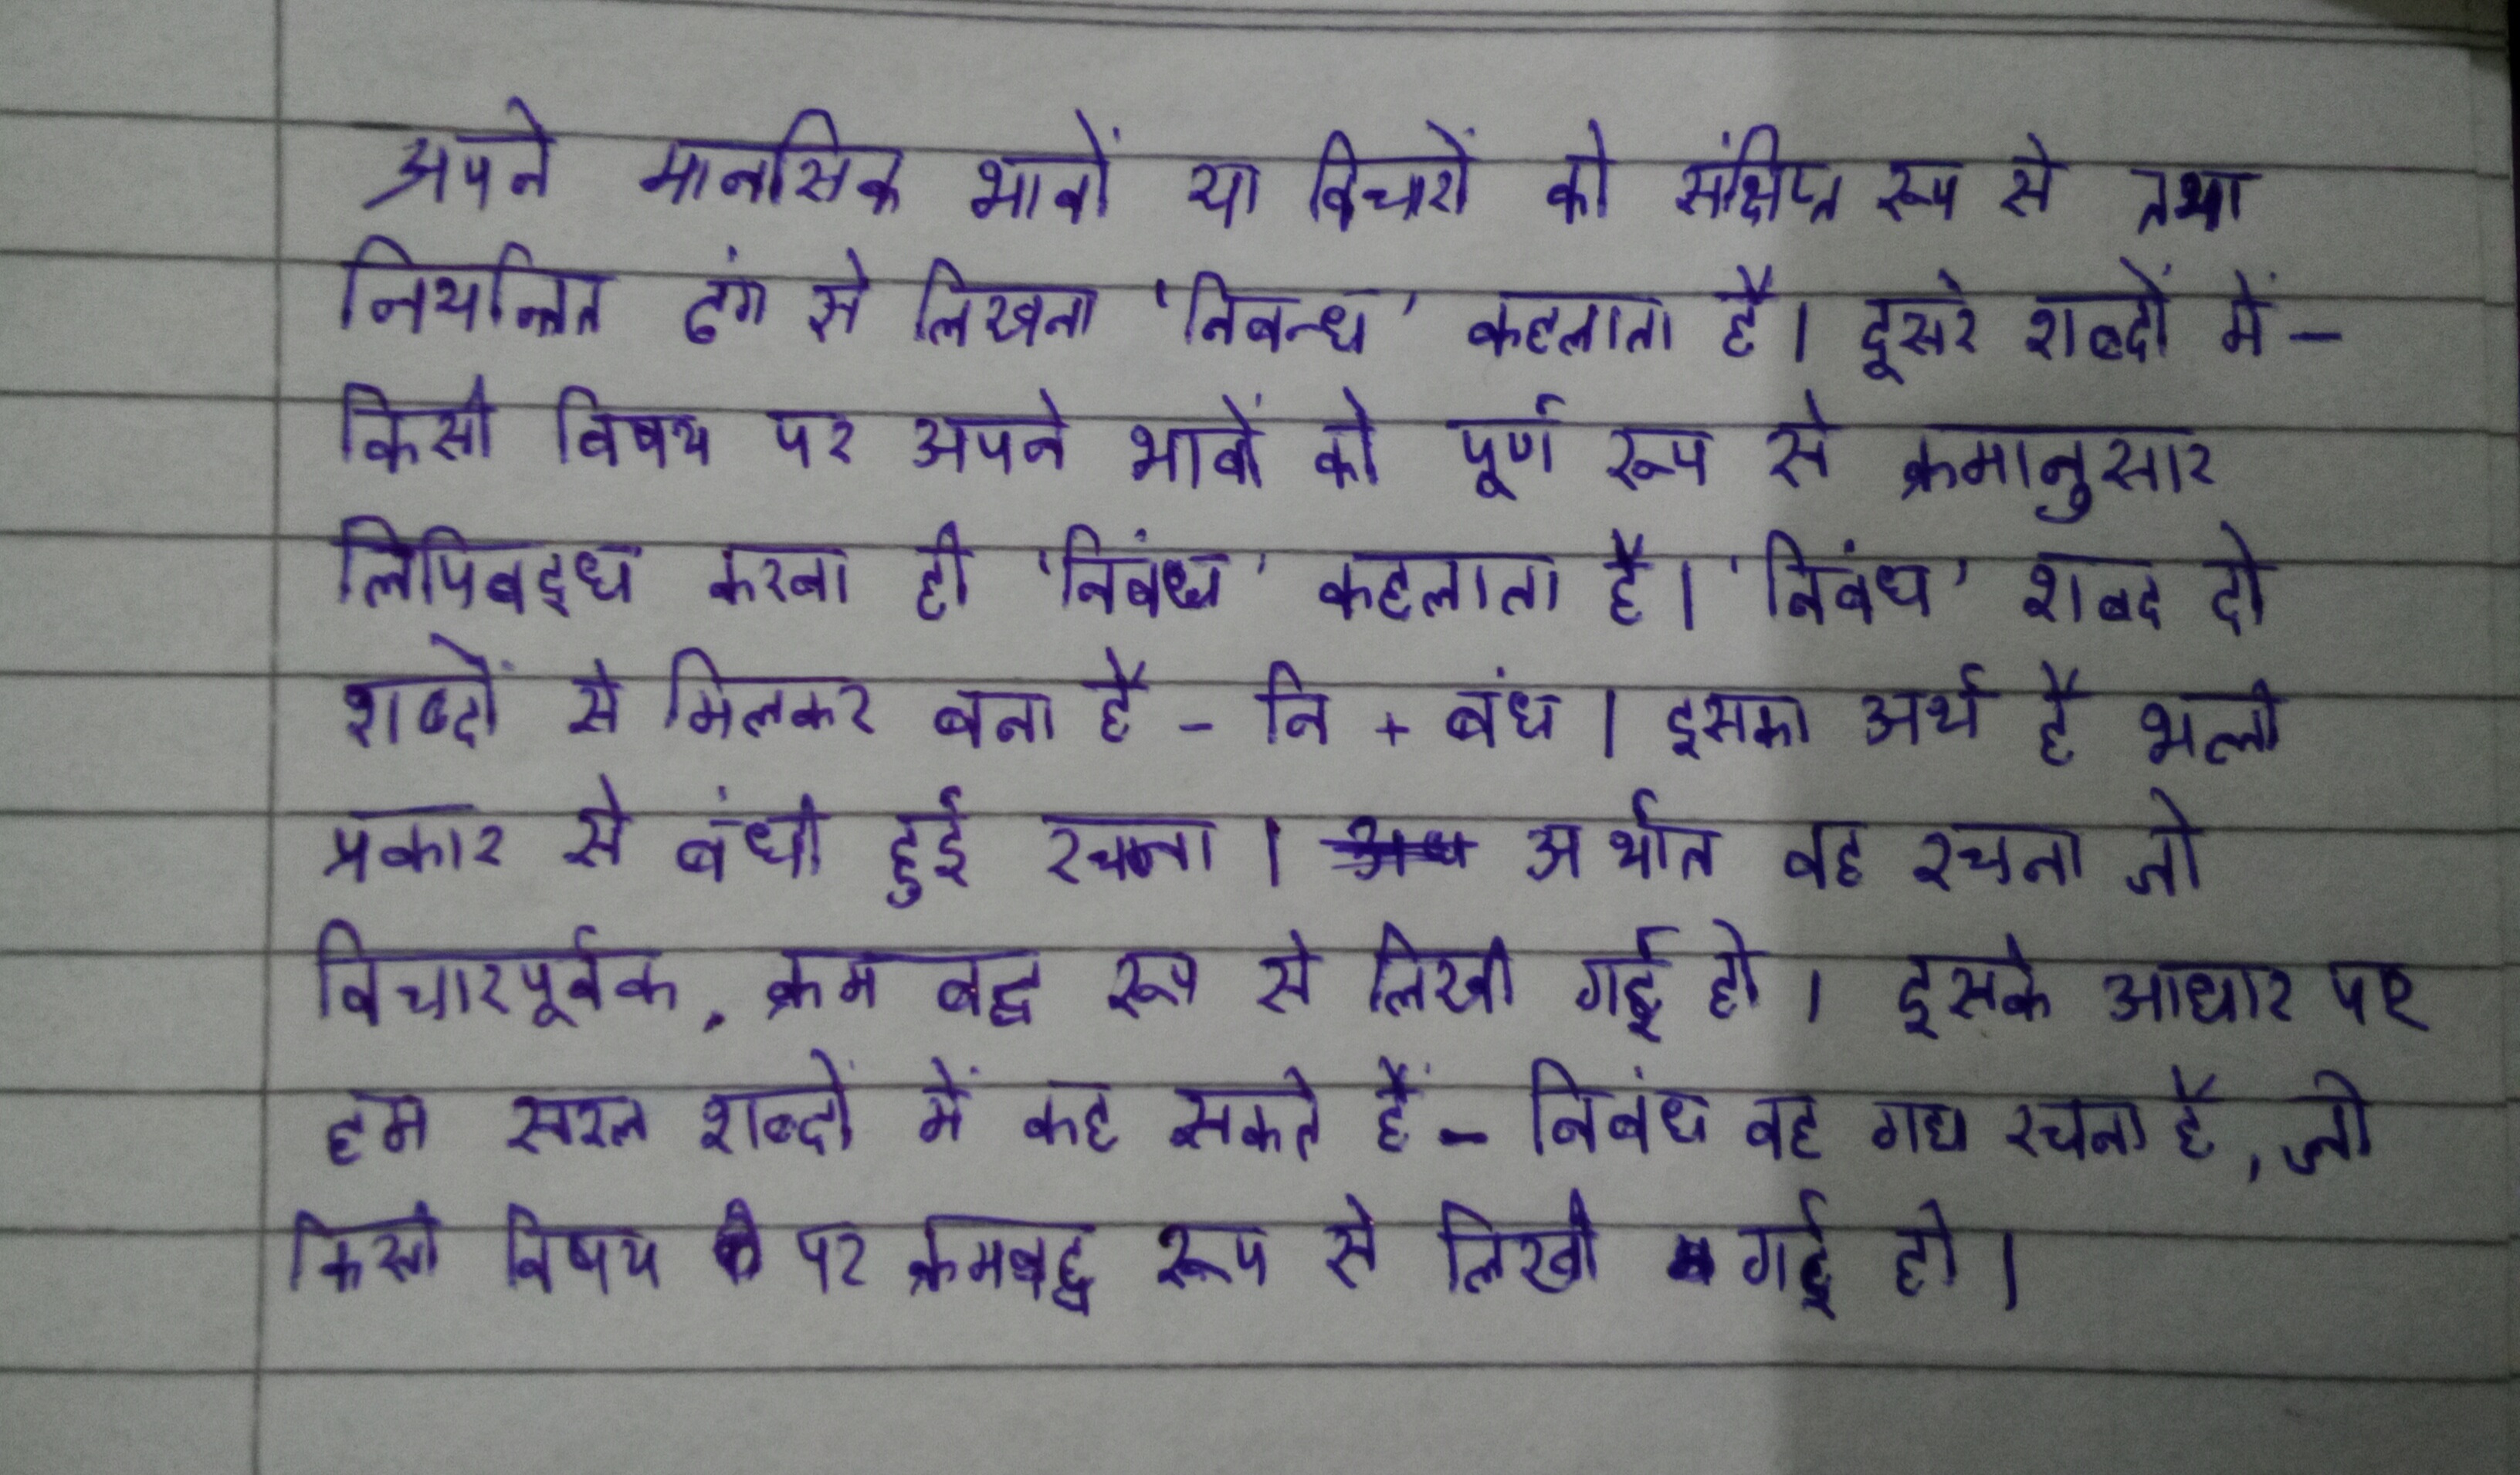 अपने मानसिक भावों या विचारों को संक्षिप्त रूप से तथा
नियन्त्रित ढंग से लिखना 'निबन्ध' कहलाता है। दूसरे शब्दों में -
किसी विषय पर अपने भावों को पूर्ण रूप से क्रमानुसार
लिपिबद्ध करना ही 'निबंध' कहलाता है। 'निबंध' शब्द दो
शब्दों से मिलकर बना है - नि + बंध। इसका अर्थ है भली
प्रकार से बंधी हुई रचना। अर्थात वह रचना जो
विचारपूर्वक, क्रम बद्ध रूप से लिखी गई हो। इसके आधार पर
हम सरल शब्दों में कह सकते हैं - निबंध वह गद्य रचना है, जो
किसी विषय पर क्रमबद्ध रूप से लिखी गई हो।